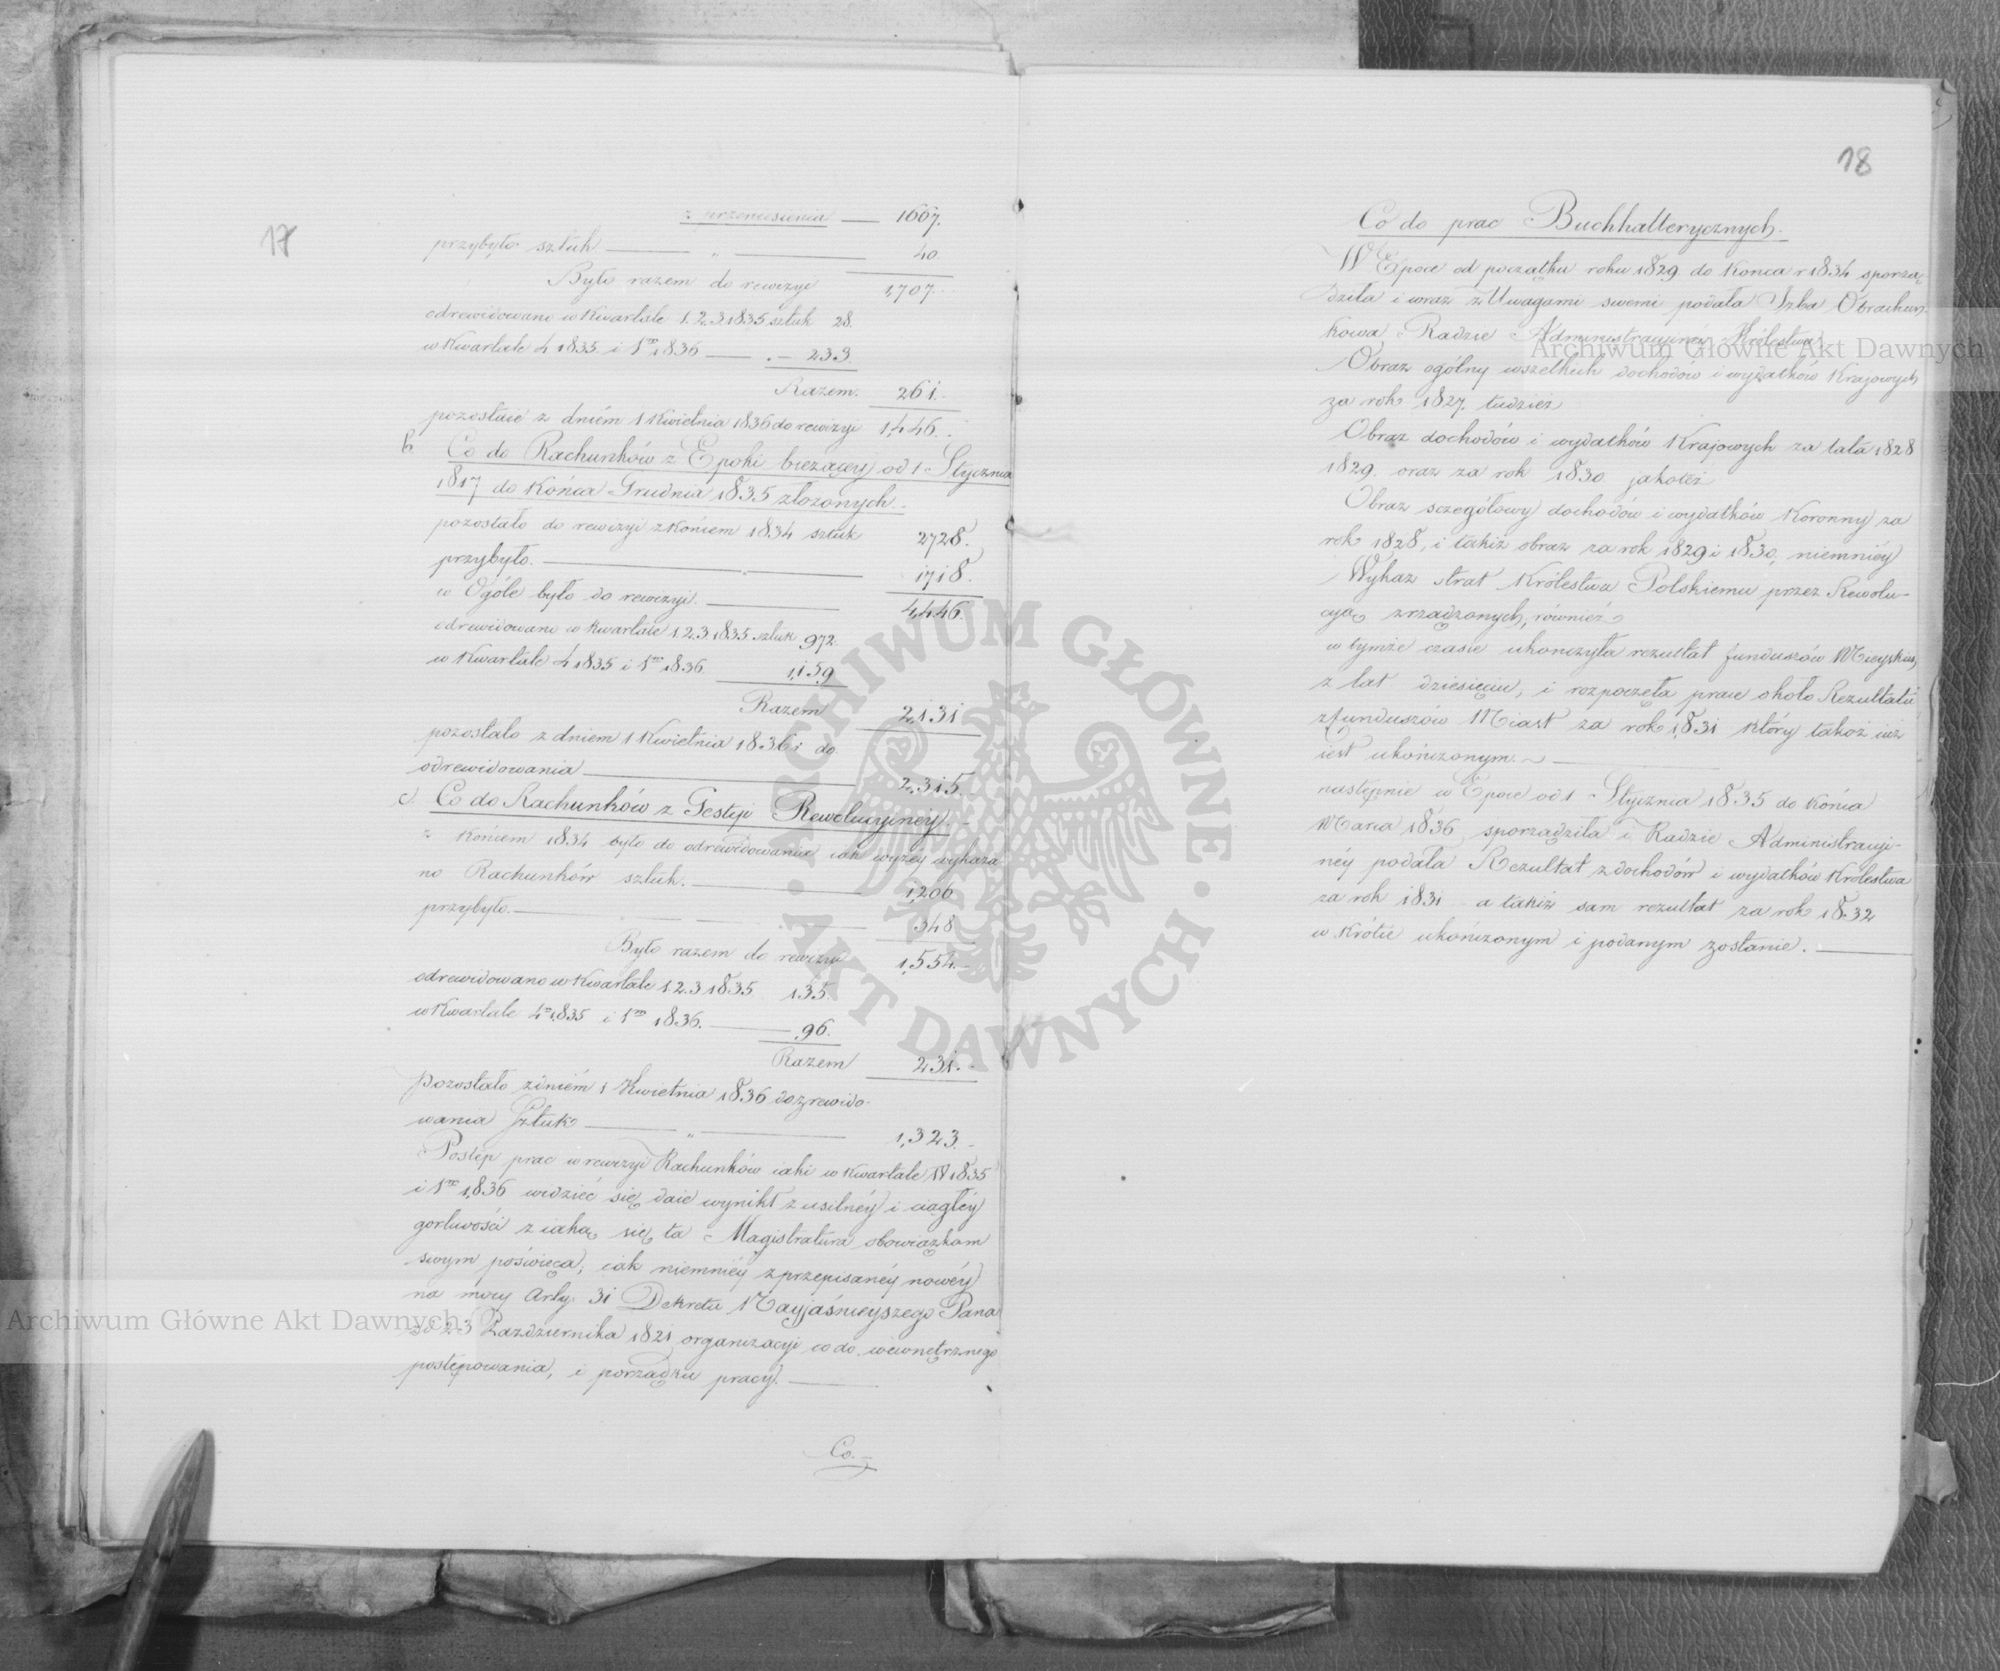 17
z przeniesienia — 1667.
przybyło sztuk — „ — 40.
Było razem do rewizyi 1,707.
odrewidowano w Kwartale 1.2.3.1835 sztuk 28.
w Kwartale 4 1835 i 1m 1836 — „ — 233.
Razem. 261.
pozostaie z dniem 1 Kwietnia 1836 do rewizyi 1,446.
b. Co do Rachunków z Epoki bieżącey od 1 Stycznia
1817 do Końca Grudnia 1835 złożonych.
pozostało do rewizyi z Końcem 1834 sztuk 2728.
przybyło. — „ — 1718.
w Ogóle było do rewizyi. — 4,446.
odrewidowano w Kwartale 1.2.3 1835 sztuk 972.
w Kwartale 4 1835 i 1m 1836. — 1,159
Razem 2,131
pozostało z dniem 1 Kwietnia 1836 do
odrewidowania — 2,315.
c). Co do Rachunków z Gestyi Rewolucyjnéy.
z Końcem 1834 było do odrewidowania iak wyżéy wykaza
no Rachunków sztuk. — 1,206
przybyło. — 348
Było razem do rewizyi 1,554.
odrewidowano w Kwartale 1.2.3 1835 135.
w Kwartale 4m 1835 i 1m 1836. — 96.
Razem 231.
Pozostało z dniem 1 Kwietnia 1836 do zrewido-
wania Sztuk — „ — 1,323.
Postęp prac w rewizyi Rachunków iaki w Kwartale IV 1835
i 1m 1836 widzieć się daie wynikł z usilnéy i ciągłéy
gorliwości z iaką się ta Magistratura obowiązkom
swym poświęca, iak niemniéy z przepisanéy nowéy
na mocy Arty. 31 Dekretu Nayjaśnieyszego Pana
z d 23 Października 1821 organizacyi co do wewnętrznego
postępowania, i porządku pracy. —
Co. —
18
Co do prac Buchhalterycznych.
W Epoce od początku roku 1829 do Końca r 1834 sporzą
dziła i wraz z Uwagami swemi podała Izba Obrachun-
kowa Radzie Administracyjnéy Królestwa,
Obraz ogólny wszelkich dochodów i wydatków Krajowych
za rok 1827. tudzież
Obraz dochodów i wydatków Krajowych za lata 1828
1829. oraz za rok 1830 jakoteż
Obraz sczegółowy dochodów i wydatków Koronny za
rok 1828, i takiż obraz za rok 1829 i 1830, niemniéy
Wykaz strat Królestwa Polskiemu przez Rewolu-
cyą zrządzonych, również
w tymże czasie ukończyła rezultat funduszów Mieyskich,
z lat dziesięciu, i rozpoczęła prace około Rezultatu
z funduszów Miast za rok 1831 który takoż iuż
iest ukończonym. —
następnie w Epoce od 1 Stycznia 1835 do Końca
Marca 1836 sporządziła i Radzie Administracyj-
néy podała Rezultat z dochodów i wydatków Królestwa
za rok 1831 a takiż sam rezultat za rok 1832
w Krótce ukończonym i podanym zostanie. —
Archiwum Główne Akt Dawnych
Archiwum Główne Akt Dawnych
ARCHIWUM GŁÓWNE · AKT DAWNYCH ·